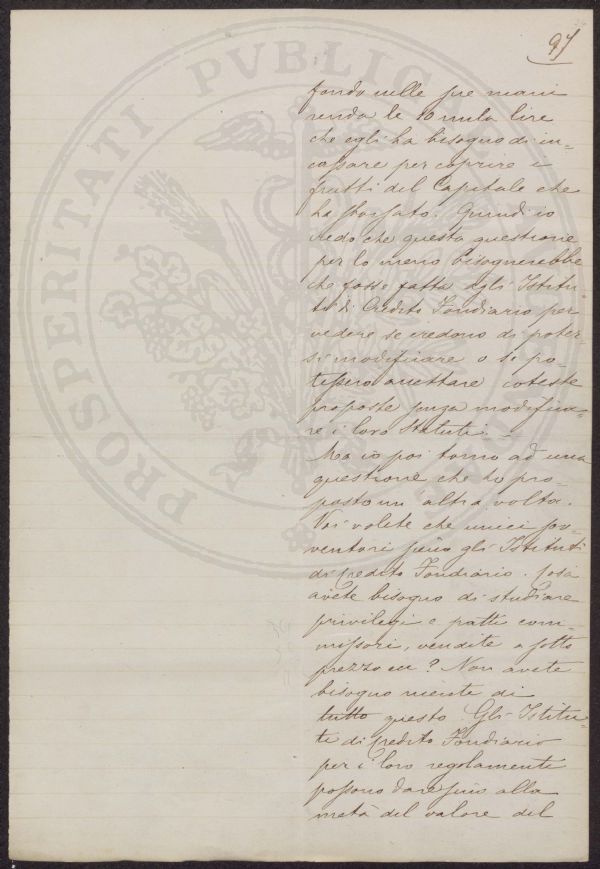 97
fondo nelle sue mani
renda le 10 mila lire
che egli ha bisogno di in-
cassare per coprire i
frutti del Capitale che
ha sborsato. Quindi io
credo che questa questione
per lo meno bisognerebbe
che fosse fatta agli Istitu-
ti di Credito Fondiario per
vedere se credono di poter-
si modificare o se po-
tessero accettare coteste
proposte senza modifica-
re i loro Statuti. -
Ma io poi torno ad una
questione che ho pro-
posto un'altra volta.
Voi volete che unici sov-
ventori siano gli Istituti
di Credito Fondiario. Cosa
avete bisogno di studiare
privilegi e patti com-
missori, vendite a sotto
prezzo ecc? Non avete
bisogno niente di
tutto questo. Gli Istitu-
ti di Credito Fondiario
per i loro regolamenti
possono dare sino alla
metà del valore del
PROSPERITATI PVBLICAE